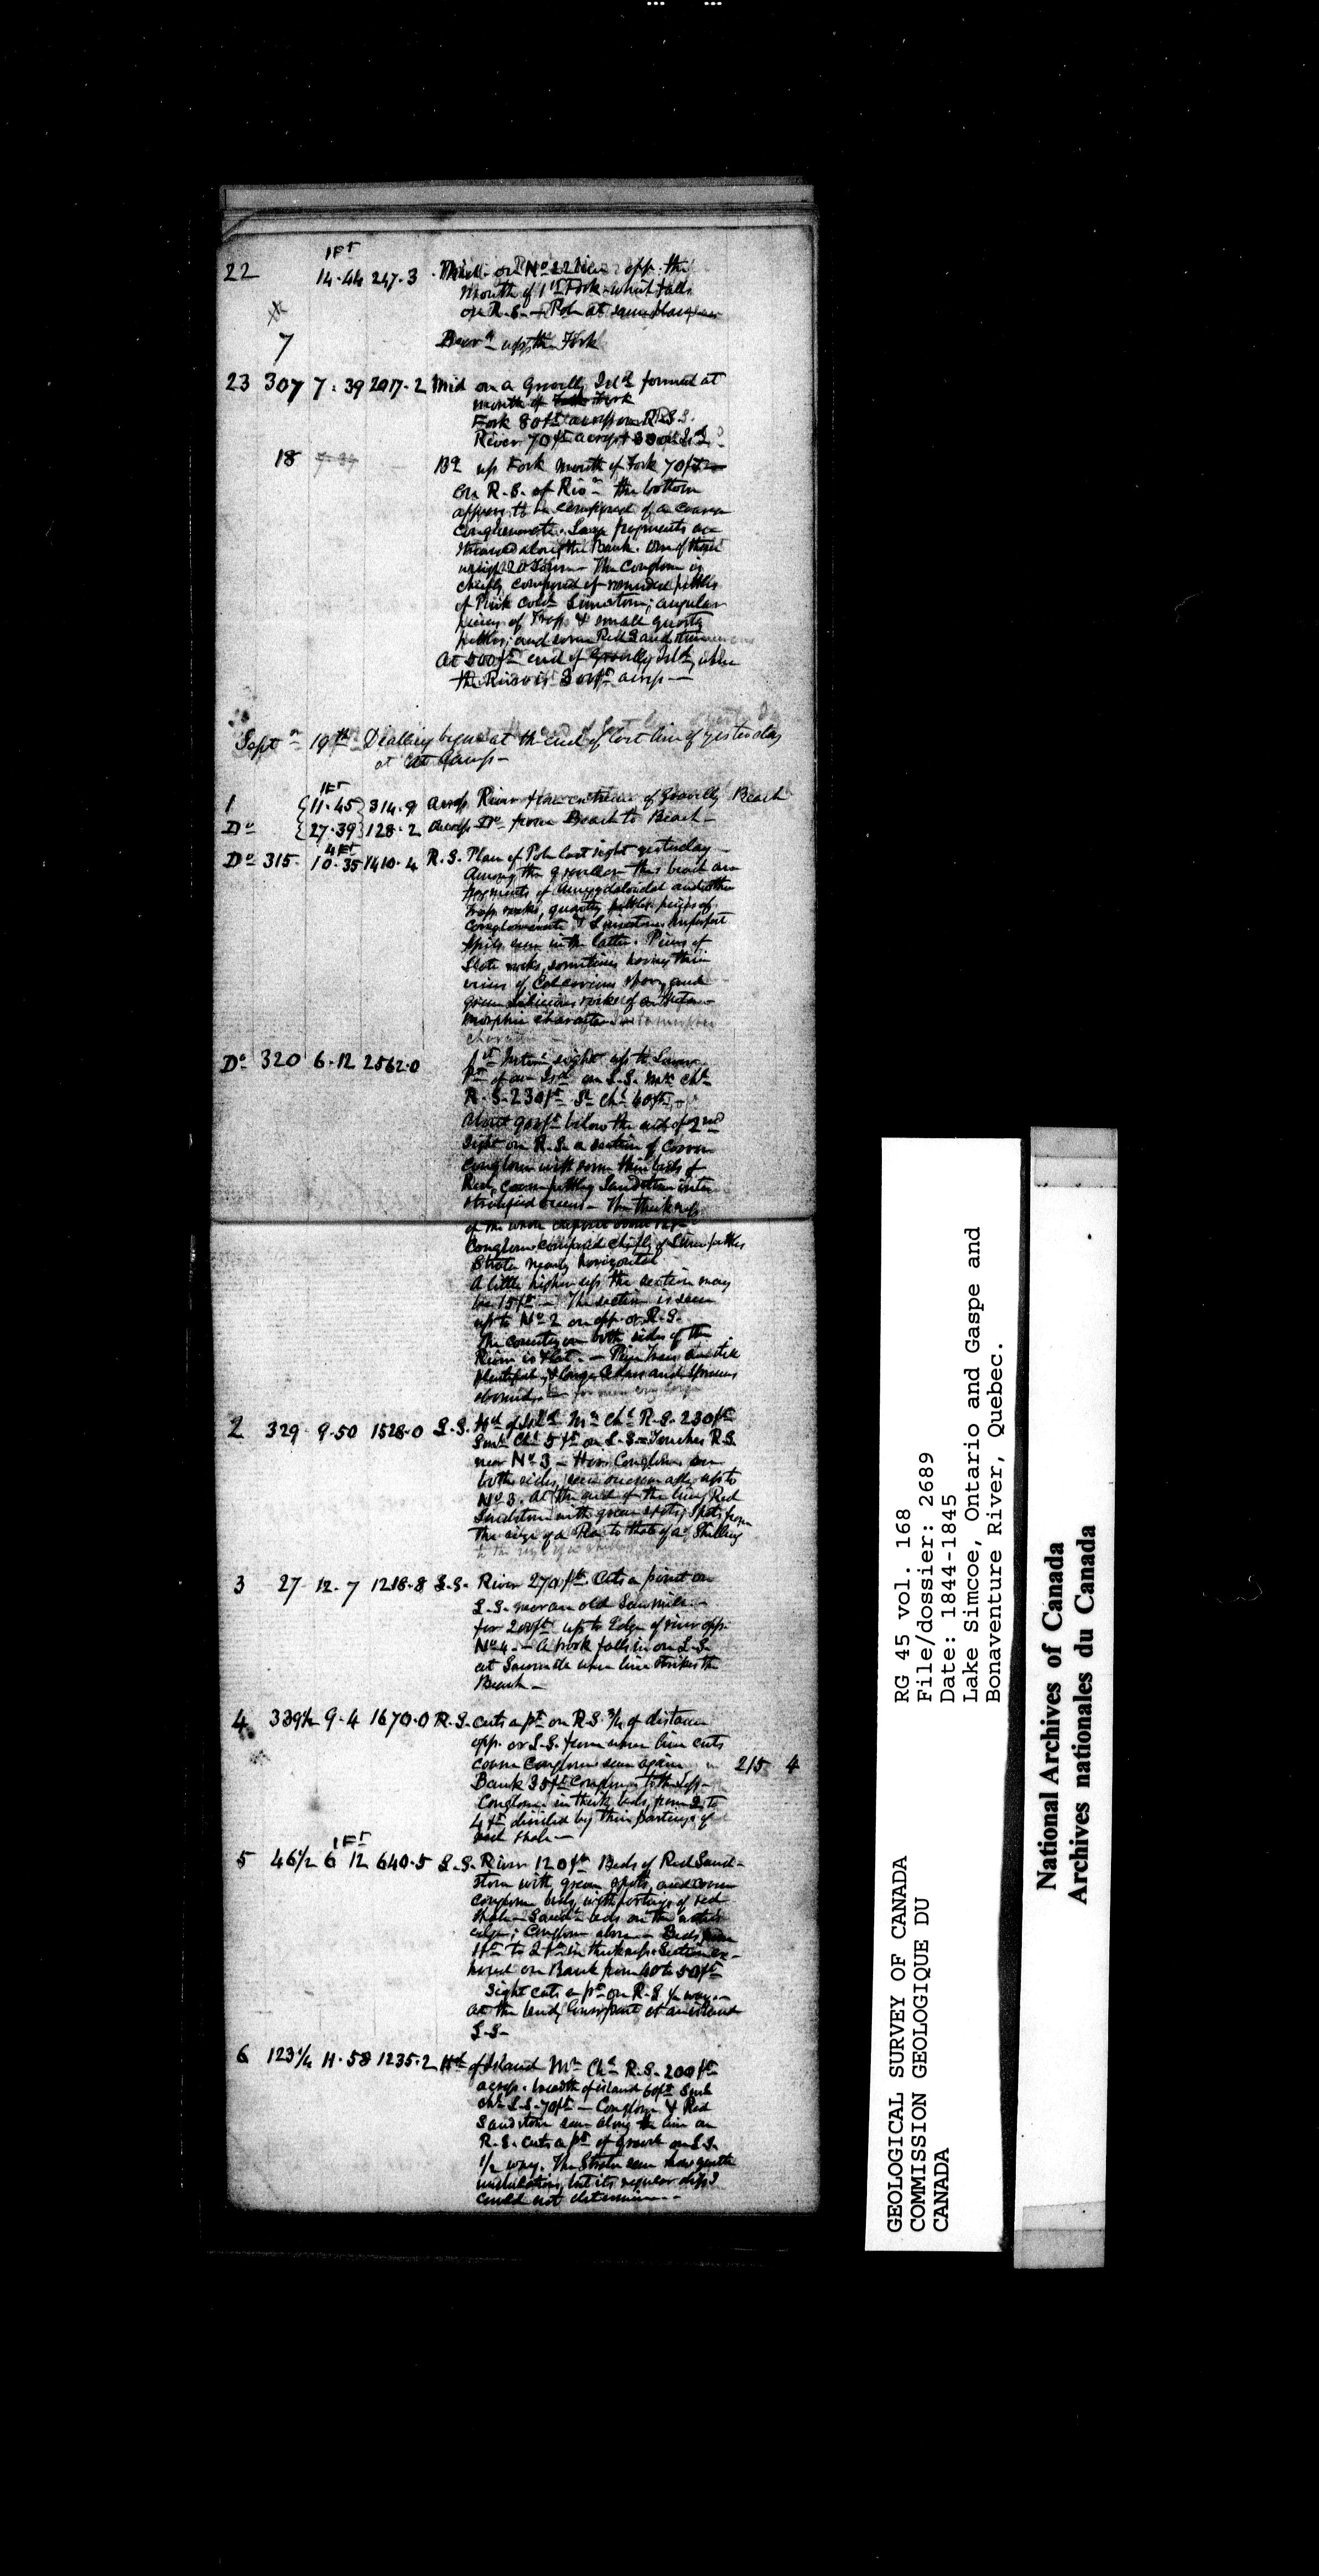 1 Ft
22 14.44 247.3 on No 22 opp. the
mouth of 1st Fork which falls
on R.S. - Pole at same place
7 Bearg up the Fork
23 307 7.39 2017.2 Mid on a gravelly Isld formed at
mouth of Fork
Fork 80 ft across on R.S.
River 70 ft across
18 7.39 Bg up Fork mouth of Fork 70 ft
on R.S. of Rivr the bottom
appears to be composed of a coarse
conglomerate. Large fragments are
strewed along the Bank. Some of these
weigh 20 Tons - The conglom is
chiefly composed of rounded pebbles
of Pink cold Limestone; angular
pieces of Trap & small quartz
pebbles; and some Red Sandstone
At 500 ft end of gravelly Isld, where
the River is 300 ft across -
Septr 19th Dialling begun at the end of last line of yesterday
at Camp -
1 Ft
1 11.45 314.9 across River from extreme of gravelly Beach
Do 27.39 128.2 across Do from Beach to Beach -
4 Ft
Do 315 10.35 1410.4 R.S. Place of Pole last night yesterday -
Among the gravel on this beach are
fragments of Amygdaloidal and other
Trap rocks, quartz pebbles pieces of
conglomerate & Limestone. Imperfect
fossils seen in the latter. Pieces of
Slate rocks, sometimes having thin
veins of Calcareous spar, and
green silicious rocks of a Meta-
morphic character
Do 320 6.12 2562.0 1st sight up to Lower
Pt of an Isd on L.S. Mn Chl
R.S. 230 ft Sl Chl 60 ft -
About 900 ft below the end of 2nd
sight on R.S. a section of coarse
conglom with some thin beds of
Red, coarse pebbly Sandstone inter
stratified occurs - The thickness
of the whole deposit about 12 ft
Conglom composed chiefly of Lime pebbles
Strata nearly horizontal
A little higher up the section may
be 15 ft - The section is seen
up to No 2 on opp. or R.S.
The country on both sides of the
River is flat. - Pine Trees are still
plentiful, & large Cedars and Spruces
abound.
2 329 9.50 1528.0 L.S. Hd of Isld Mn Chl R.S. 230 ft
Sml Chl 5 ft on L.S. Touches R.S.
near No 3 - Here Conglom on
both sides, seen occasionally up to
No 3. At the end of the line Red
Sandstone with green spots; Spots from
the size of a Pea to that of a Shilling
3 27 12.7 1218.8 L.S. River 270 ft. Cuts a point on
L.S. near an old Saw mill -
for 200 ft up to Edge of river opp.
No 4. - A brook falls in on L.S.
at Sawmill when line strikes the
Beach -
4 339½ 9.4 1670.0 R.S. Cuts a pt on R.S. ¾ of distance
opp. or L.S. from where line cuts
coarse Conglom seen again 215 4
Bank 35 ft Conglom to the top -
Conglom in thick beds, from 2 to
4 ft divided by thin partings of
red shale -
1 Ft
5 46½ 6 12 640.5 L.S. River 120 ft Beds of Red Sand-
stone with green spots, and coarse
conglom beds, with partings of red
shale - Sandst beds on the water
edge; Conglom above - Beds from
1 ft to 2 ft in thickness. Section ex-
posed on Bank from 40 to 50 ft
Sight cuts a pt on R.S. ½ way -
At the end, lower point of an island
L.S.
6 123¼ 11.58 1235.2 Hd of Island Mn Chl R.S. 200 ft
across. breadth of island 60 ft Sml
chl L.S. 70 ft - Conglom & Red
Sandstone seen along the line on
R.S. cuts a pt of gravel on L.S.
½ way. The Strata seen show gentle
undulations, but its regular dip I
could not determine -
GEOLOGICAL SURVEY OF CANADA
COMMISSION GEOLOGIQUE DU
CANADA
RG 45 vol. 168
File/dossier: 2689
Date: 1844-1845
Lake Simcoe, Ontario and Gaspe and
Bonaventure River, Quebec.
National Archives of Canada
Archives nationales du Canada